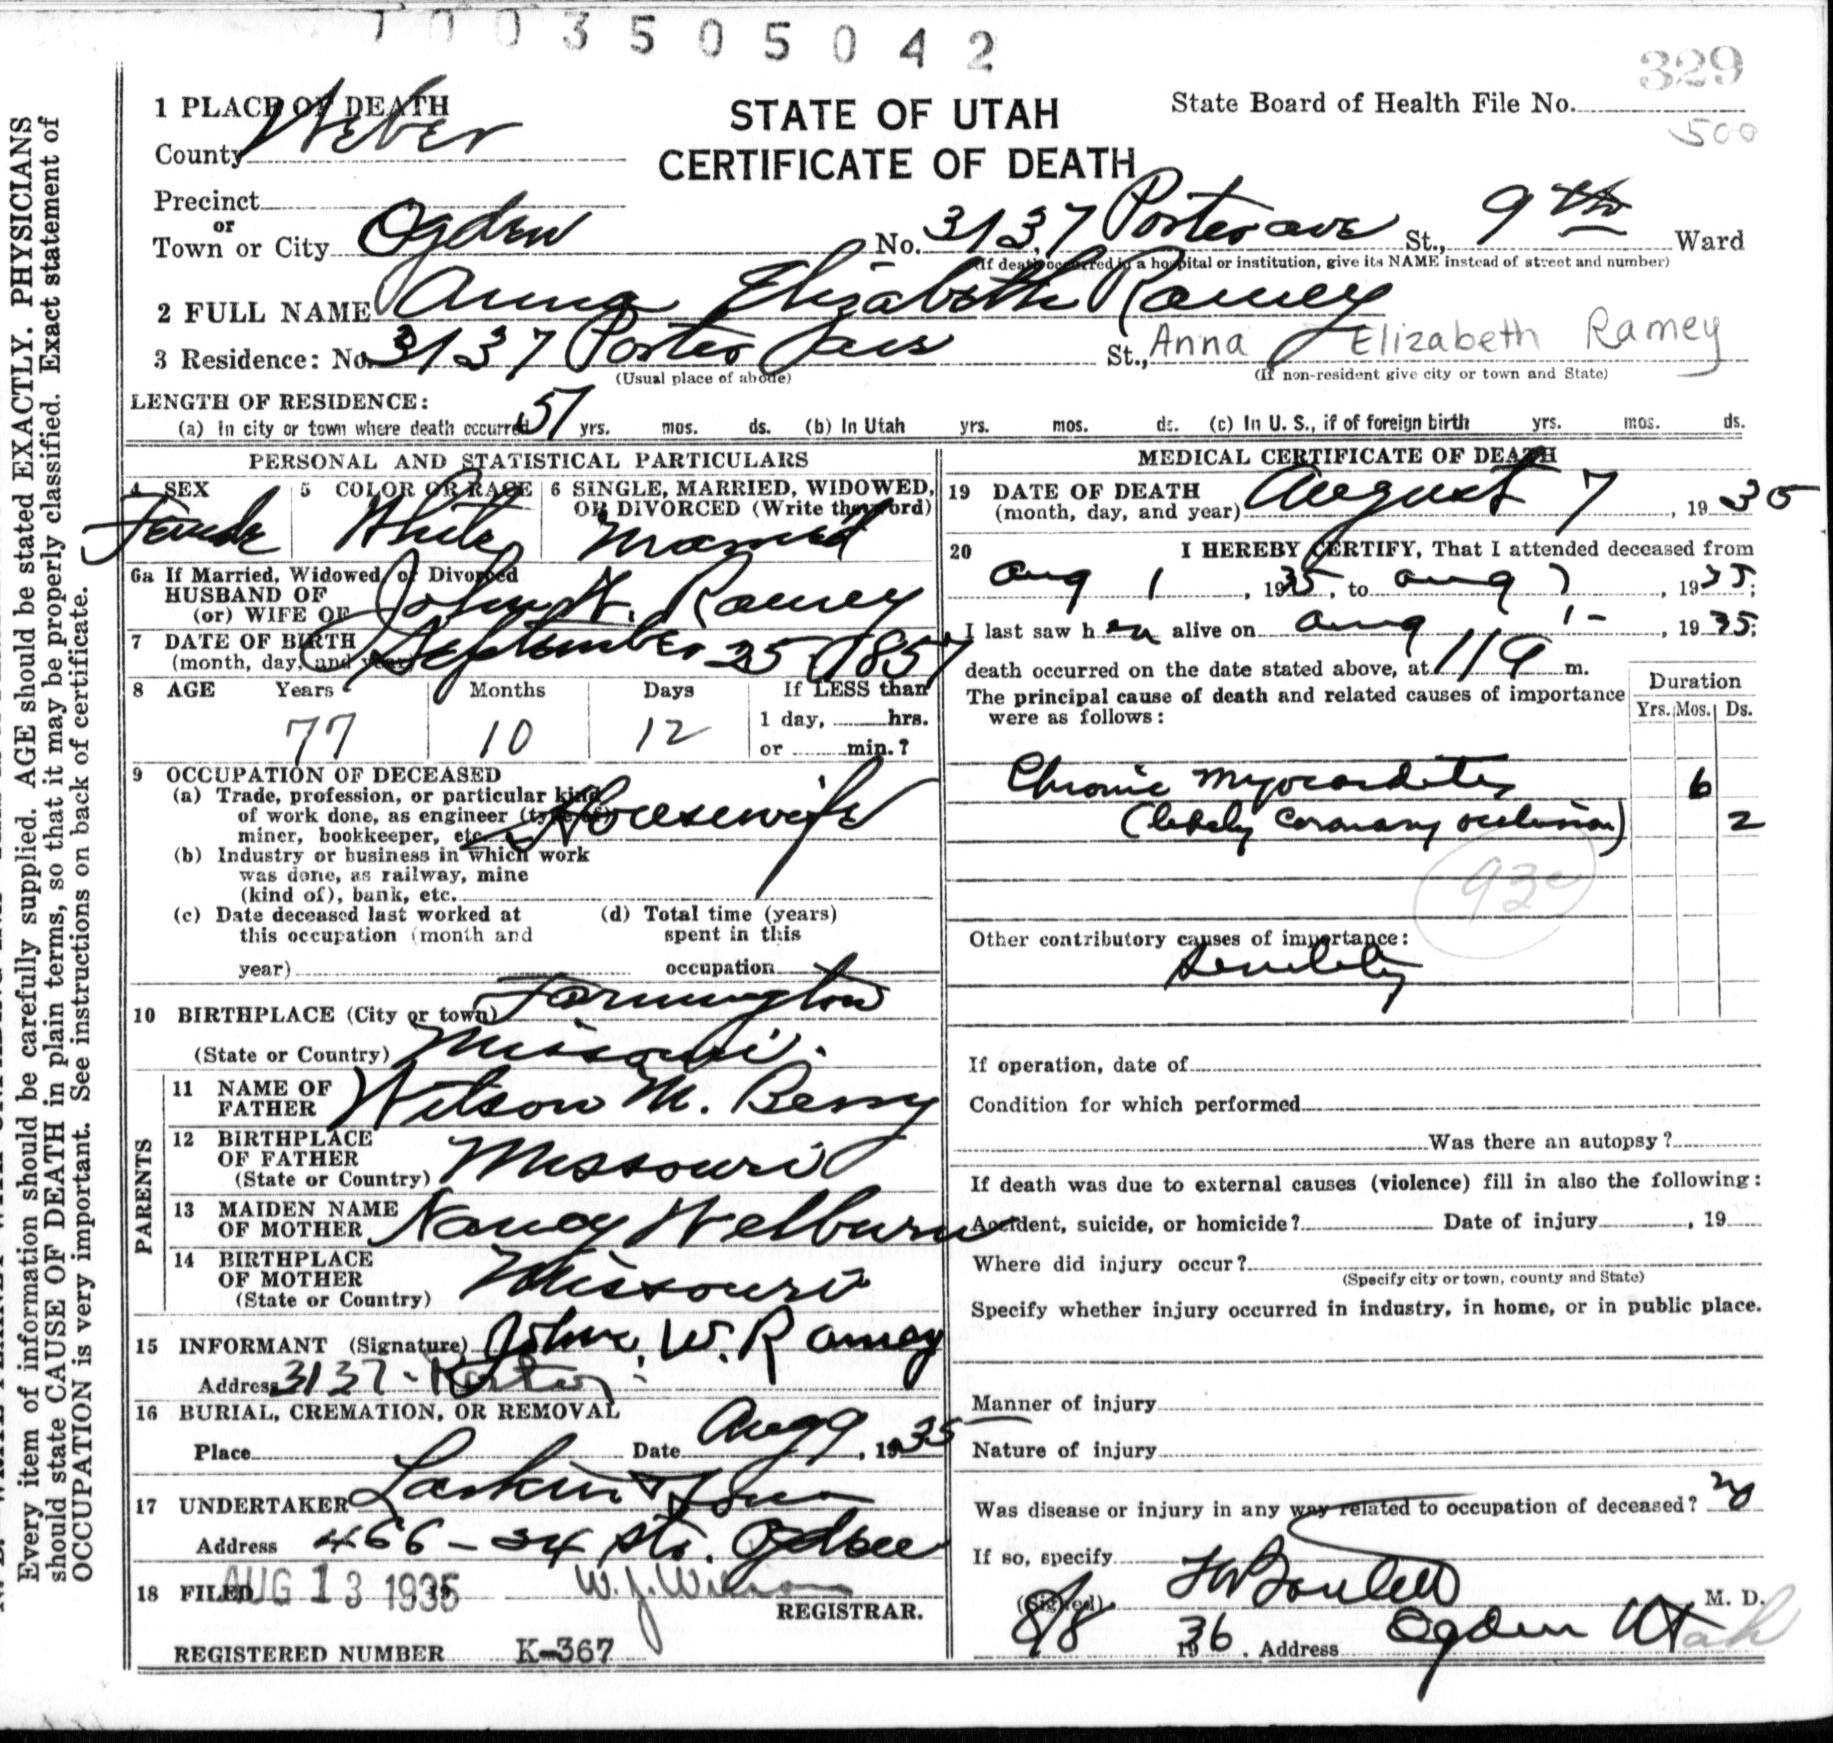 1003505042
329
500
1 PLACE OF DEATH
STATE OF UTAH
CERTIFICATE OF DEATH
State Board of Health File No.
County Weber
Precinct
or
Town or City Ogden No. 3137 Porter ave St., 9th Ward
(If death occurred in a hospital or institution, give its NAME instead of street and number)
2 FULL NAME Anna Elizabeth Ramey
3 Residence: No. 3137 Porter St., Anna Elizabeth Ramey
(Usual place of abode) (If non-resident give city or town and State)
LENGTH OF RESIDENCE:
(a) In city or town where death occurred 51 yrs. mos. ds. (b) In Utah yrs. mos. ds. (c) In U. S., if of foreign birth yrs. mos. ds.
PERSONAL AND STATISTICAL PARTICULARS
4 SEX 5 COLOR OR RACE 6 SINGLE, MARRIED, WIDOWED,
OR DIVORCED (Write the word)
Female White Married
6a If Married, Widowed, or Divorced
HUSBAND OF
(or) WIFE OF John W. Ramey
7 DATE OF BIRTH
(month, day, and year) September 25 1857
8 AGE Years Months Days If LESS than
77 10 12 1 day, hrs.
or min.?
9 OCCUPATION OF DECEASED
(a) Trade, profession, or particular kind
of work done, as engineer (type of)
miner, bookkeeper, etc. Housewife
(b) Industry or business in which work
was done, as railway, mine
(kind of), bank, etc.
(c) Date deceased last worked at (d) Total time (years)
this occupation (month and spent in this
year) occupation
10 BIRTHPLACE (City or town) Farmington
(State or Country) Missouri.
PARENTS
11 NAME OF
FATHER Wilson M. Berry
12 BIRTHPLACE
OF FATHER
(State or Country) Missouri
13 MAIDEN NAME
OF MOTHER Nancy Welburn
14 BIRTHPLACE
OF MOTHER
(State or Country) Missouri
15 INFORMANT (Signature) John. W. Ramey
Address 3137 - Porter
16 BURIAL, CREMATION, OR REMOVAL
Place Date Aug 9, 1935
17 UNDERTAKER Larkin & Sons
Address 466 - 24 St. Ogden
18 FILED AUG 13 1935 W. J. Wilson
REGISTRAR.
REGISTERED NUMBER K-367
MEDICAL CERTIFICATE OF DEATH
19 DATE OF DEATH
(month, day, and year) August 7, 1935
20 I HEREBY CERTIFY, That I attended deceased from
Aug 1, 1935, to Aug 7, 1935;
I last saw her alive on Aug 1-, 1935;
death occurred on the date stated above, at 11 a m.
The principal cause of death and related causes of importance
were as follows:
Duration
Yrs. Mos. Ds.
Chronic Myocarditis 6
(likely coronary occlusion) 2
93c
Other contributory causes of importance:
Senility
If operation, date of
Condition for which performed
Was there an autopsy?
If death was due to external causes (violence) fill in also the following:
Accident, suicide, or homicide? Date of injury, 19
Where did injury occur?
(Specify city or town, county and State)
Specify whether injury occurred in industry, in home, or in public place.
Manner of injury
Nature of injury
Was disease or injury in any way related to occupation of deceased? no
If so, specify
(Signed) M. D.
8/8 1936. Address Ogden Utah
Every item of information should be carefully supplied. AGE should be stated EXACTLY. PHYSICIANS
should state CAUSE OF DEATH in plain terms, so that it may be properly classified. Exact statement of
OCCUPATION is very important. See instructions on back of certificate.